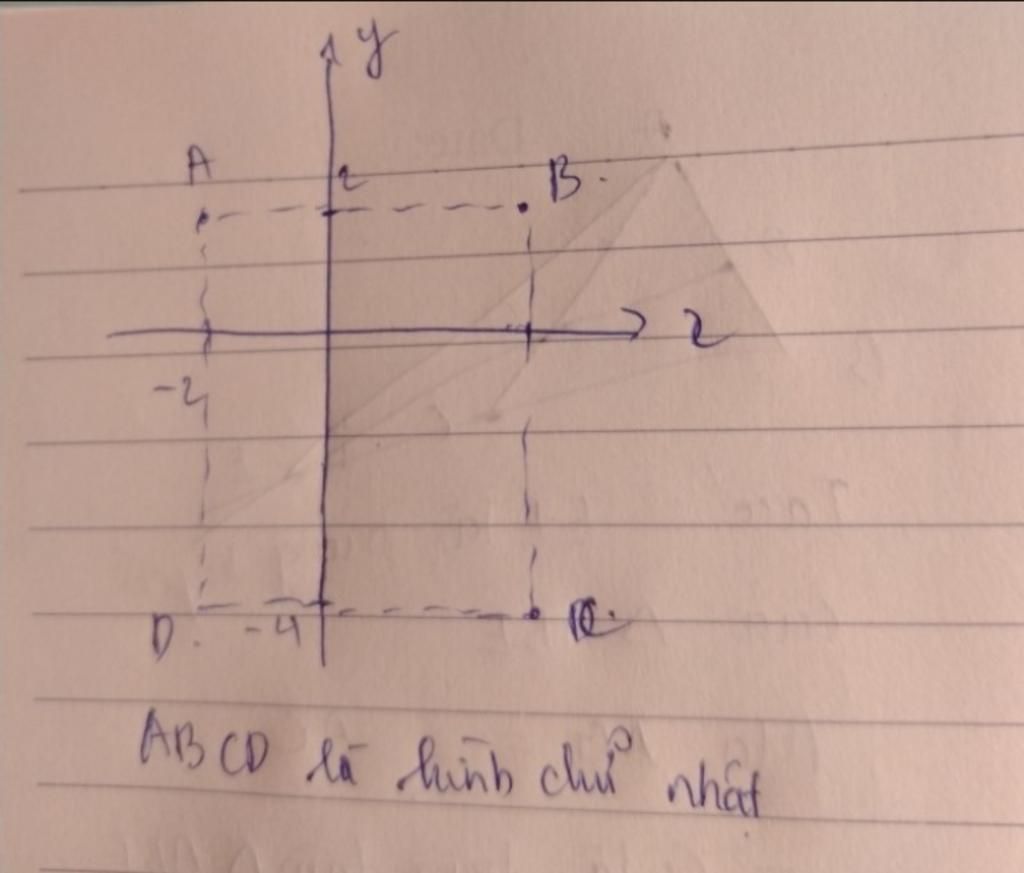 y
A
2
B.
2
-2
D. -4
C.
ABCD là hình chữ nhật